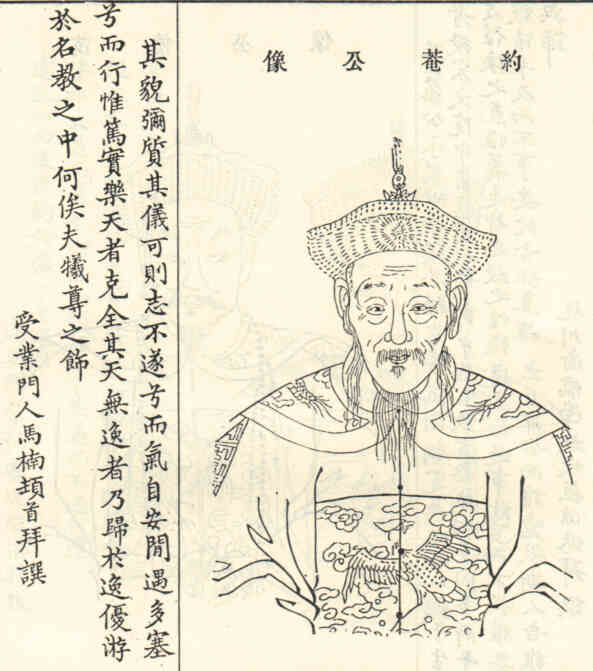 約菴公像
其貌彌質其儀可則志不遂兮而氣自安閒遇多塞
兮而行惟篤實樂天者克全其天無逸者乃歸於逸優游
於名教之中何俟夫犧尊之飾
受業門人馬楠頓首拜譔